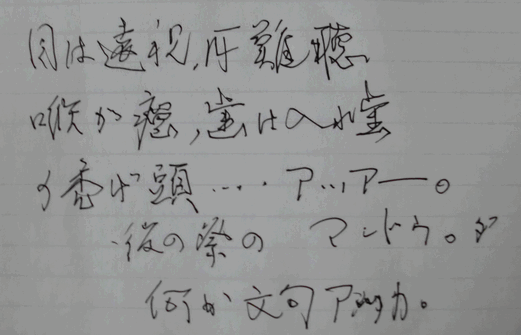 目は遠視,耳難聴
喉が癌,歯は入れ歯
イ番が頭....アッ,アー。
後の祭の マンドウ。
何か文句アッカ。